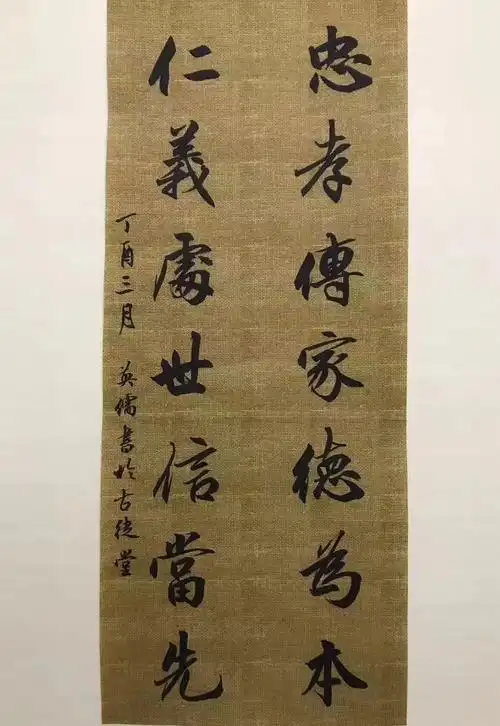 忠孝傳家德為本
仁義處世信當先
丁酉三月 英儒書於古徒堂